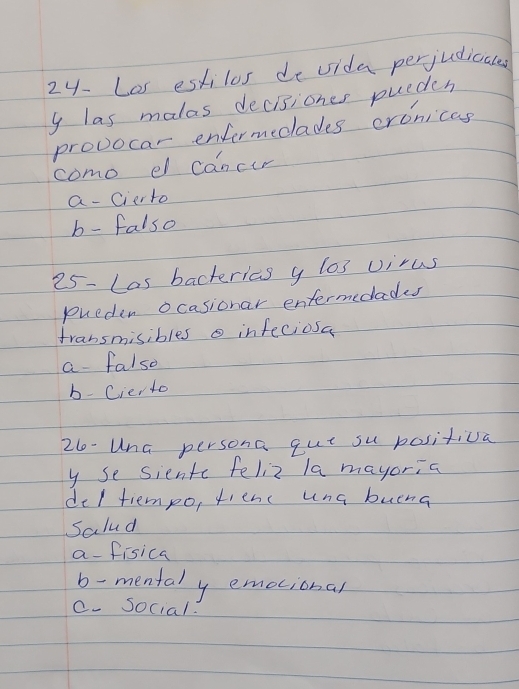 24- Los estilos de vida perjudiciales
y las malas decisiones pueden
provocar enfermedades crónicas
como el cáncer
a- Cierto
b- falso
25- Las bacterias y los virus
pueden ocasionar enfermedades
transmisibles o infeciosa
a- falso
b- Cierto
26- Una persona que su positiva
y se siente feliz la mayoría
del tiempo, tiene una buena
Salud
a- física
b- mental y emocional
c- Social.